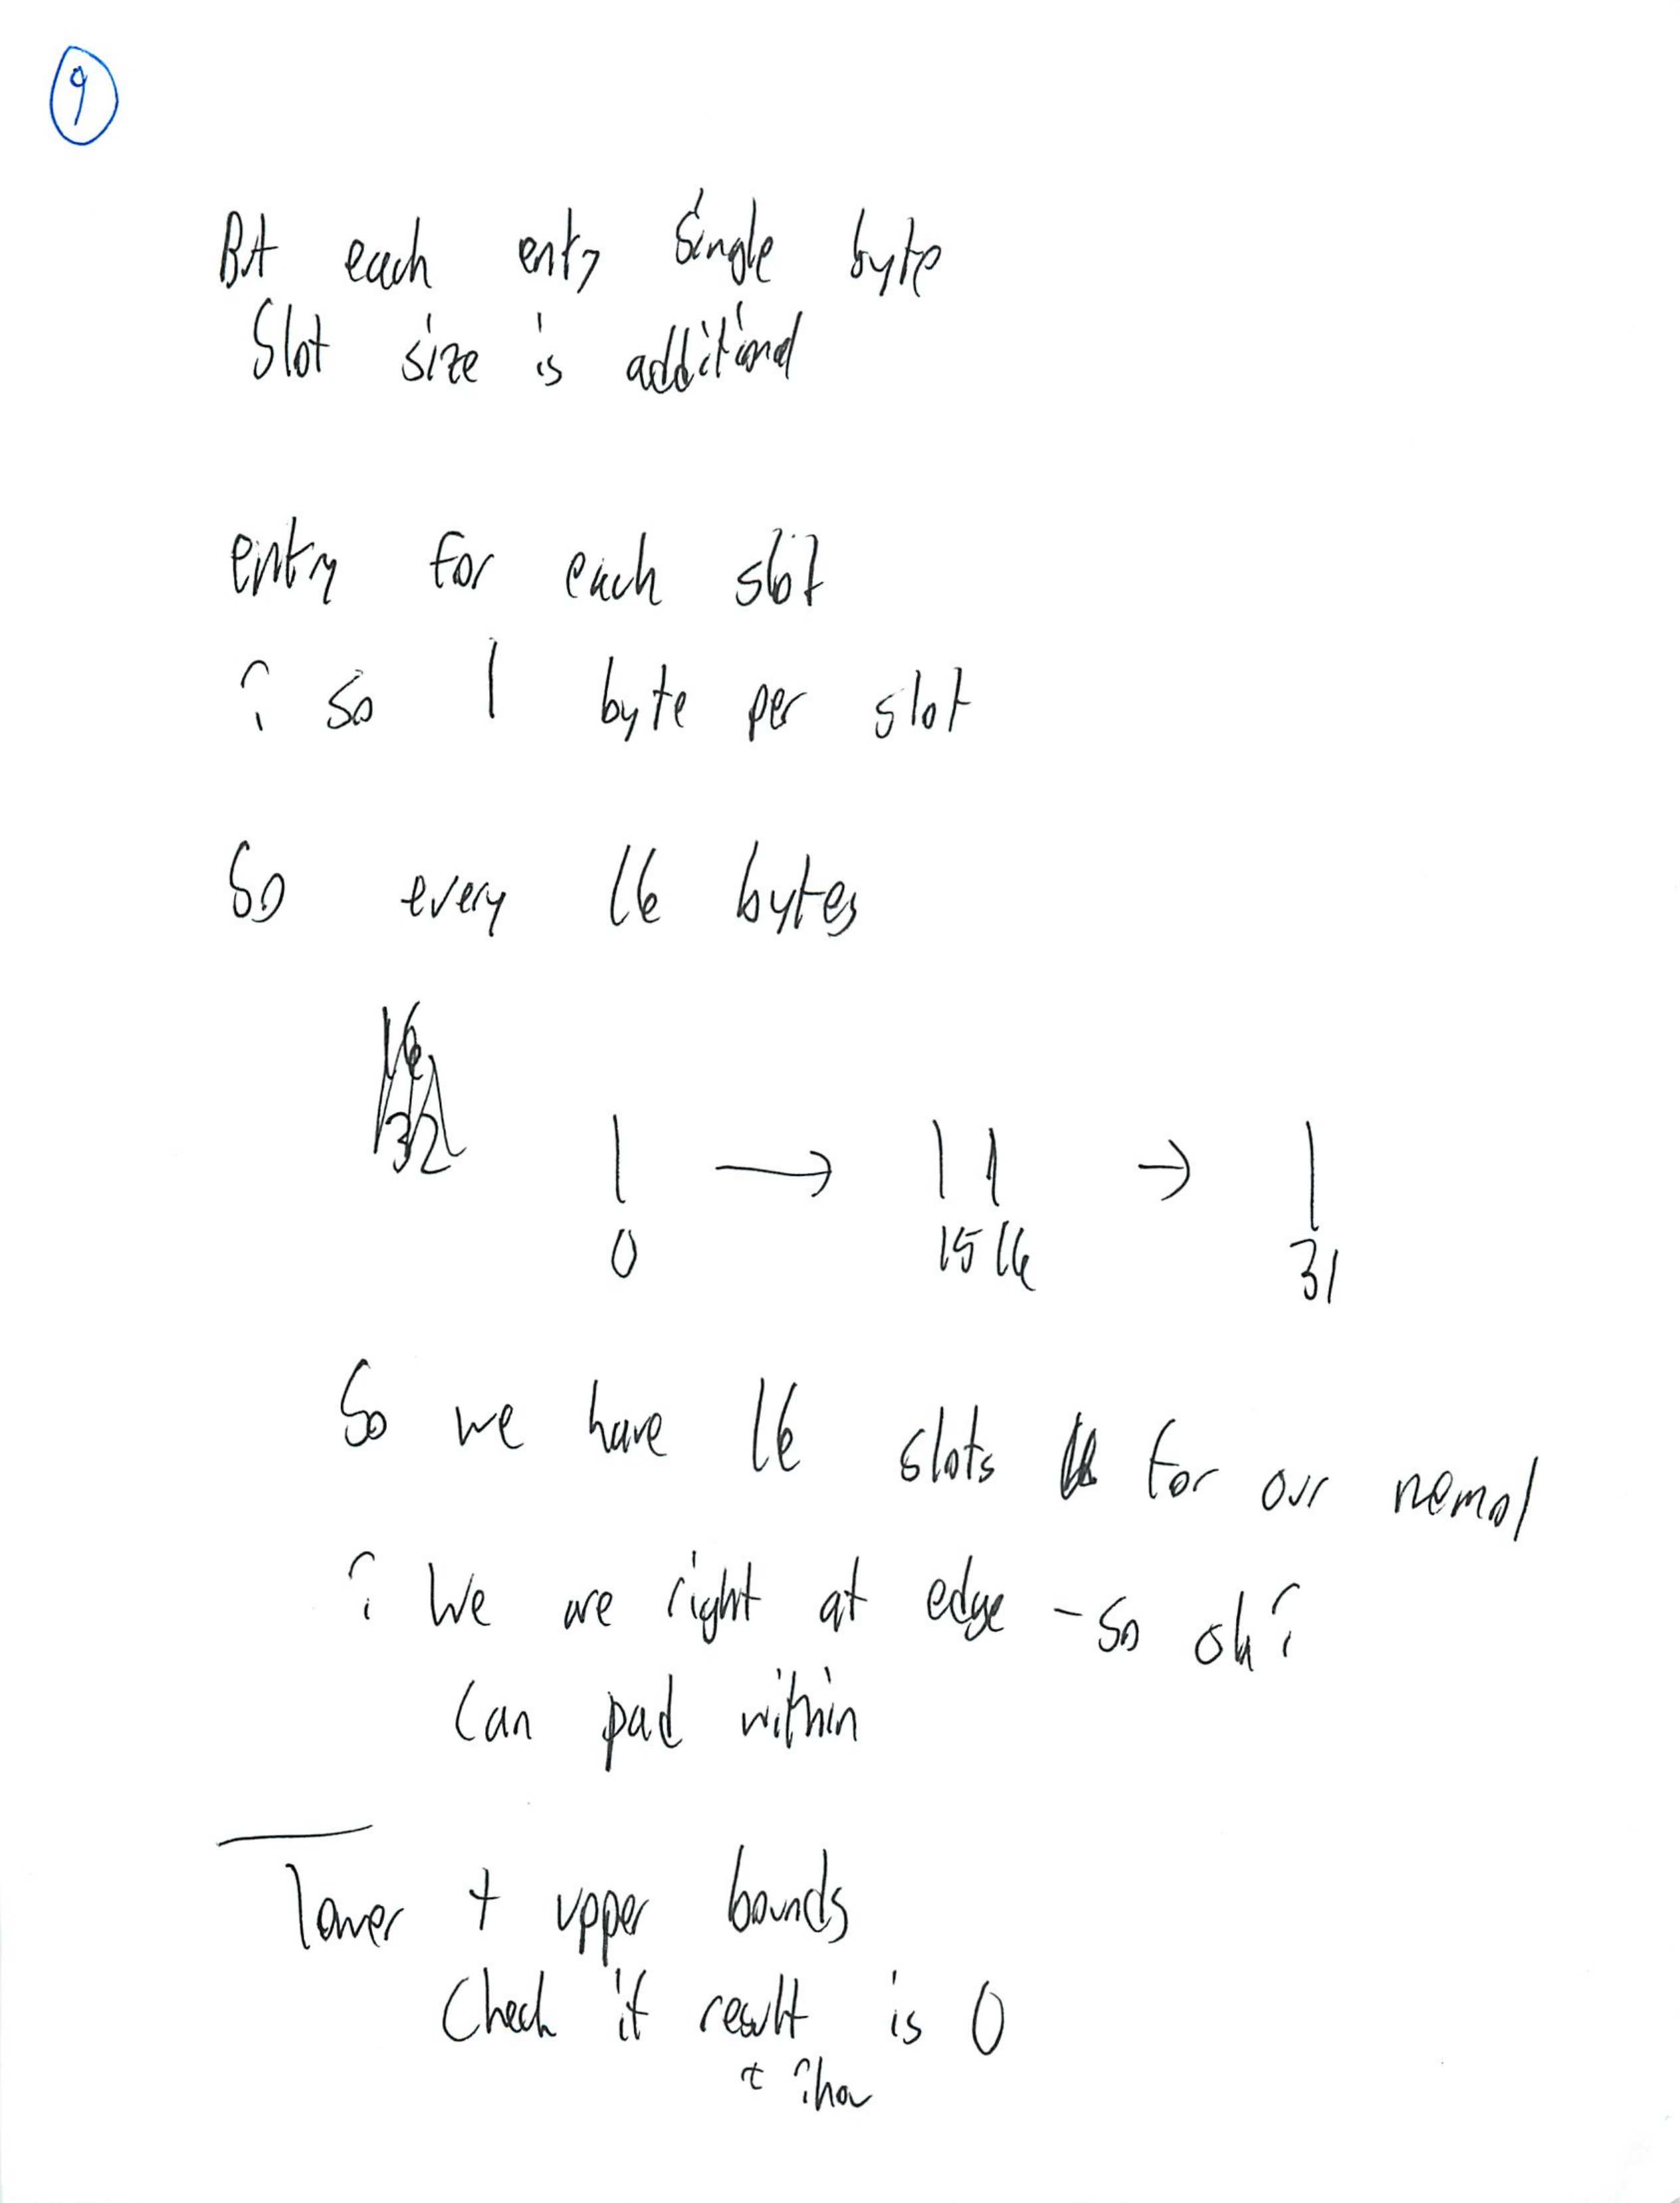 9
But each entry single byte
Slot size is additional
entry for each slot
? so 1 byte per slot
So every 16 bytes
16
32
0 → 15 16 → 31
So we have 16 slots for our normal
? We are right at edge - so oh?
Can pad within
lower + upper bounds
Check if result is 0
? how